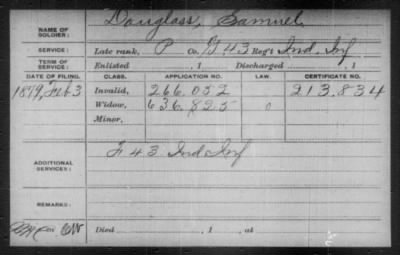 NAME OF SOLDIER: Douglass, Samuel
SERVICE: Late rank, P Co. G 43 Reg't Ind. Inf
TERM OF SERVICE: Enlisted , 1 Discharged , 1
DATE OF FILING. CLASS. APPLICATION NO. LAW. CERTIFICATE NO.
1879, Feb 3 Invalid, 266.052 213.834
Widow, 636.825
Minor,
ADDITIONAL SERVICES: F 43 Ind Inf
REMARKS:
Died , 1 , at